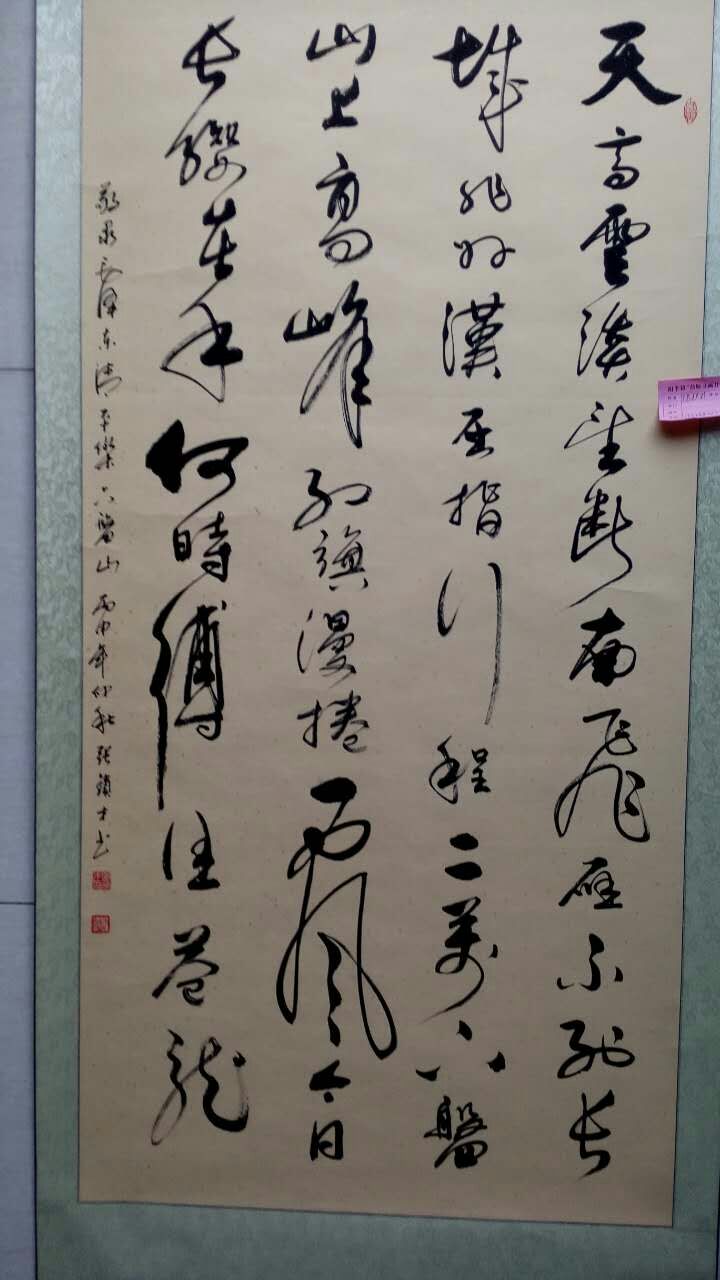 天高雲淡望断南飛雁不到长
城非好漢屈指行程二萬六盤
山上高峰红旗漫捲西風今日
长纓在手何時縛住苍龍
敬录毛泽东清平樂六盤山 丙申年仲秋 张鎖书